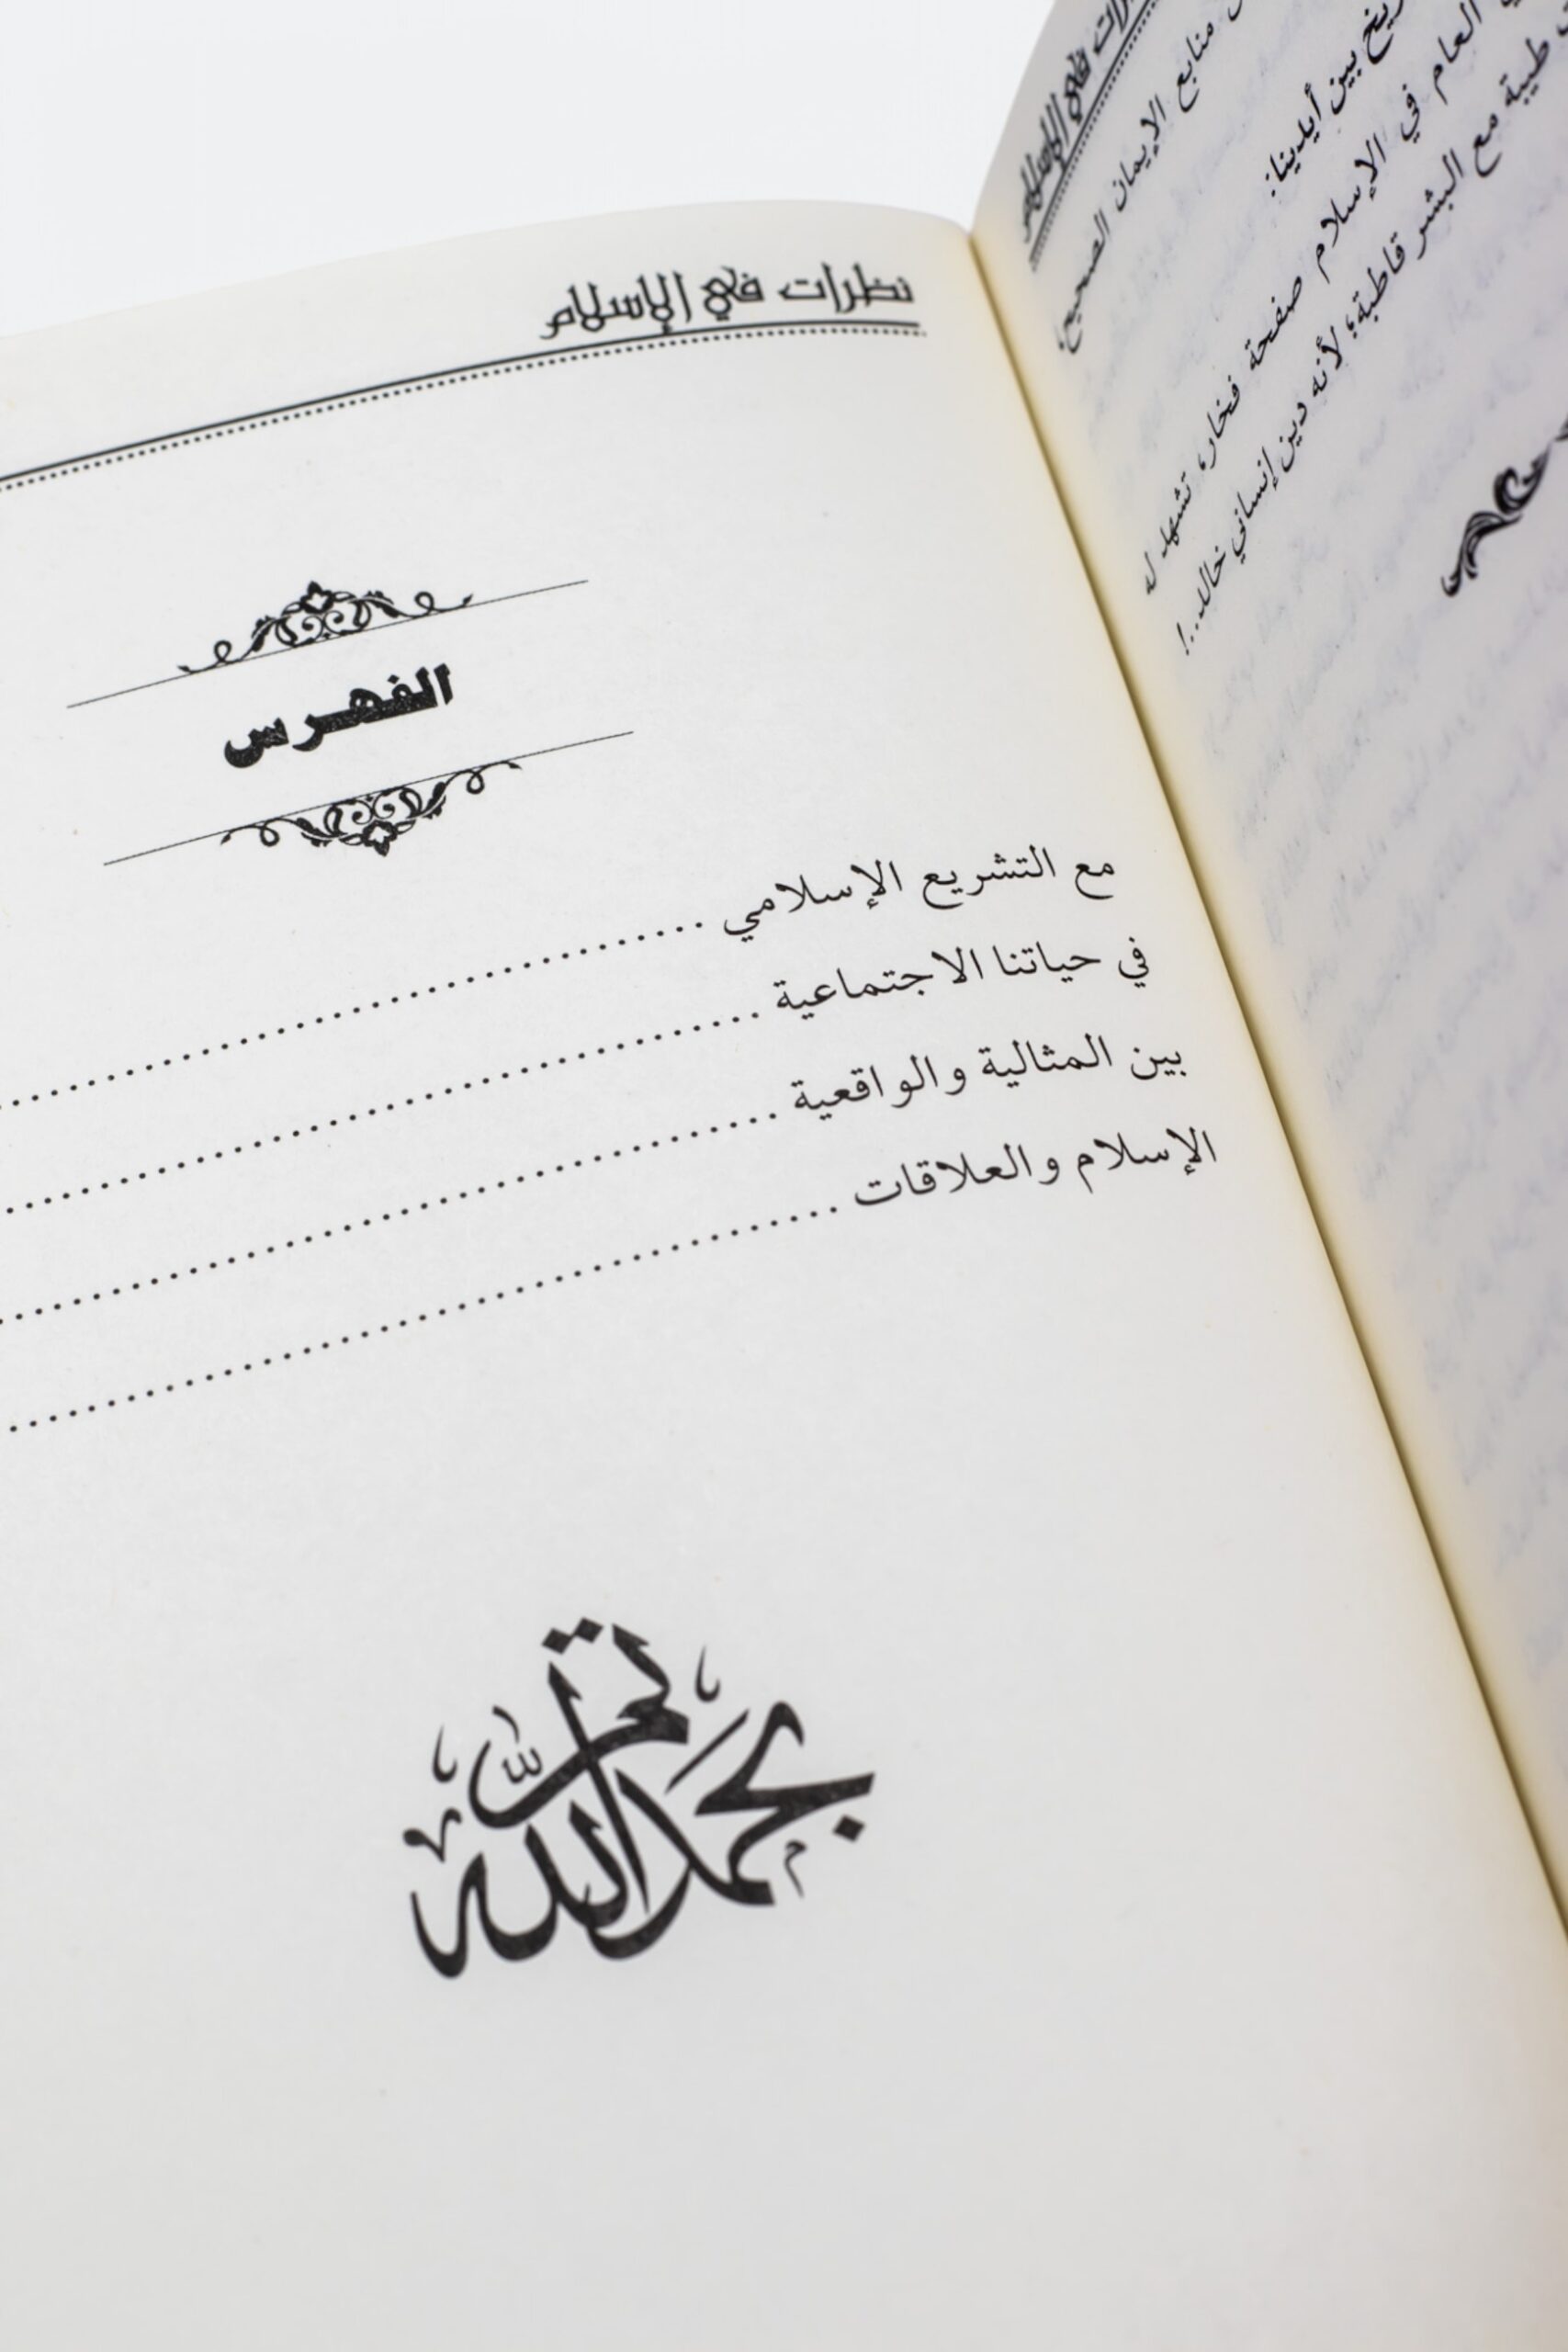 في الإسلام
منابع الإيمان الصحيح؛
بين أيدينا:
العام في الإسلام صفحة فخار، تشهد له
طيبة مع البشر قاطبة؛ لأنه دين إنساني خالد..!
نظرات في الإسلام
الفهرس
مع التشريع الإسلامي
في حياتنا الاجتماعية
بين المثالية والواقعية
الإسلام والعلاقات
تم
بحمد الله